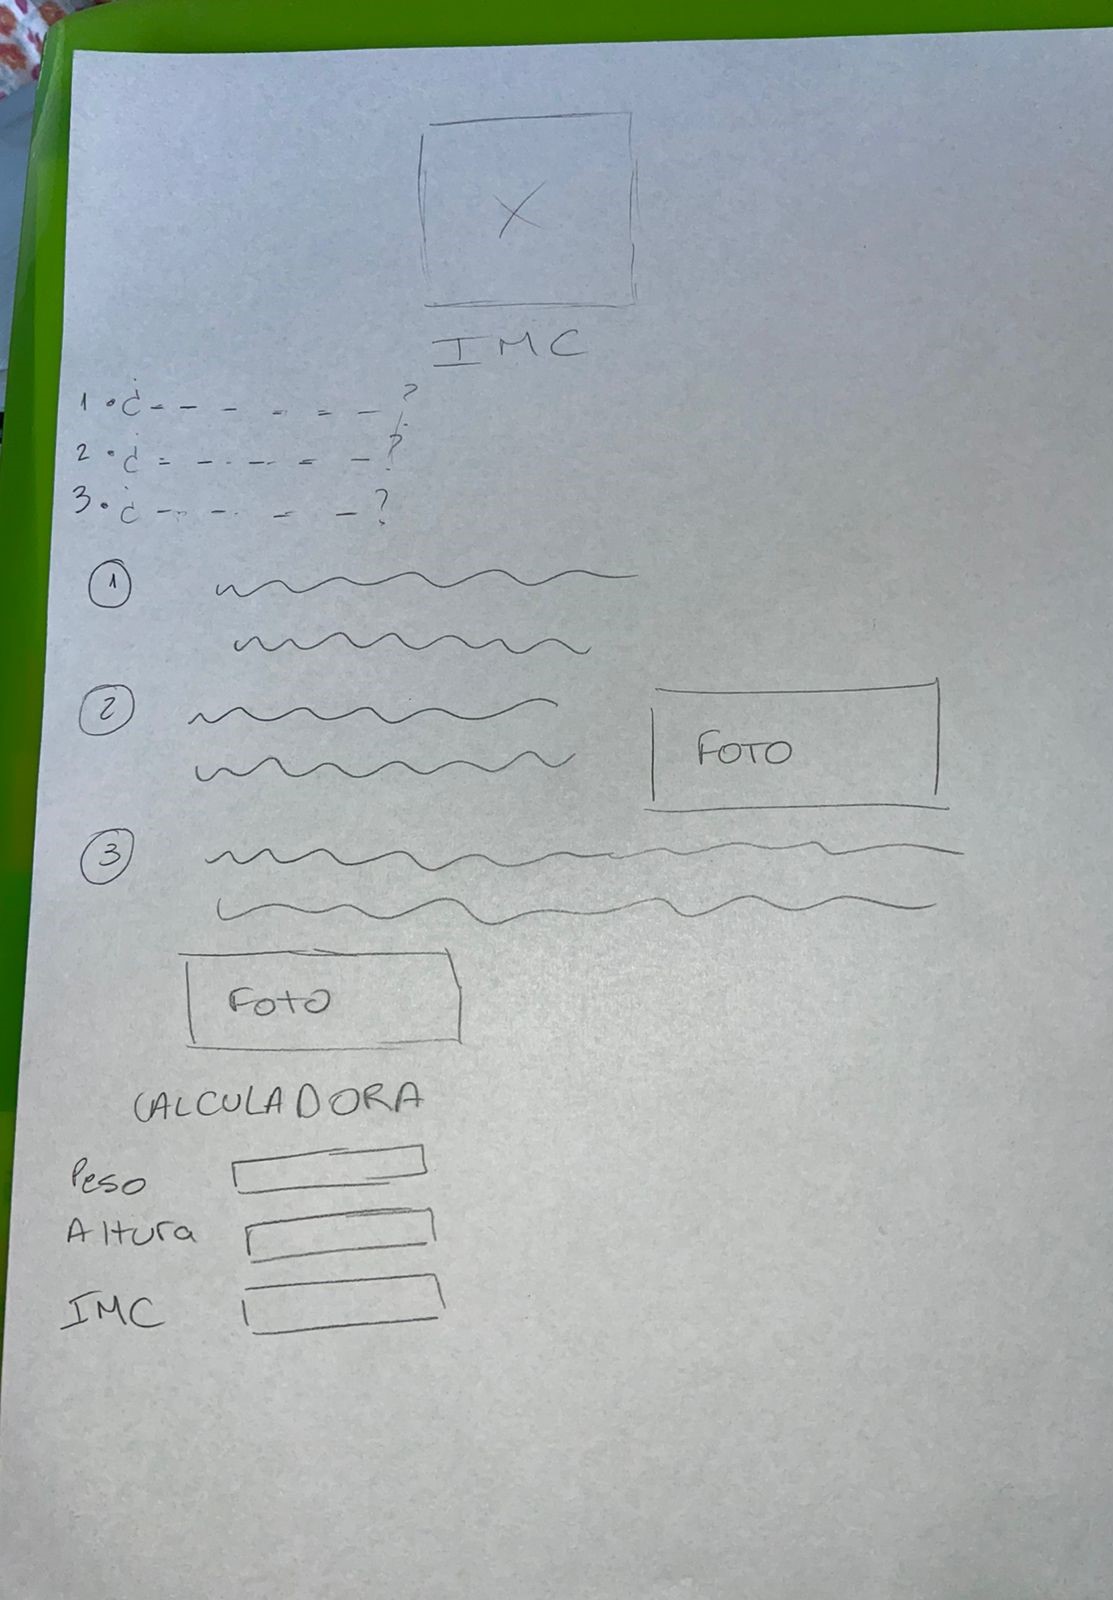 X
IMC
1. ¿- - - - - - ?
2. ¿- - - - - ?
3. ¿- - - - - ?
1
2
FOTO
3
FOTO
CALCULADORA
Peso
Altura
IMC